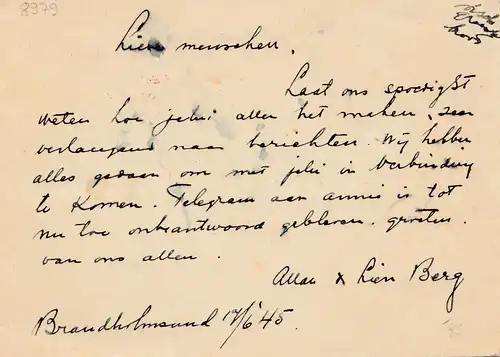 8979
Lieve menschen.
Laat ons spoedigst
weten hoe jelui allen het maken, zeer
verlangend naar berichten. Wij hebben
alles gedaan om met jelui in verbinding
te komen. Telegram aan annie is tot
nu toe onbeantwoord gebleven. groeten
van ons allen.
Allan & Lien Berg
Brandholmsund 17/6 '45.